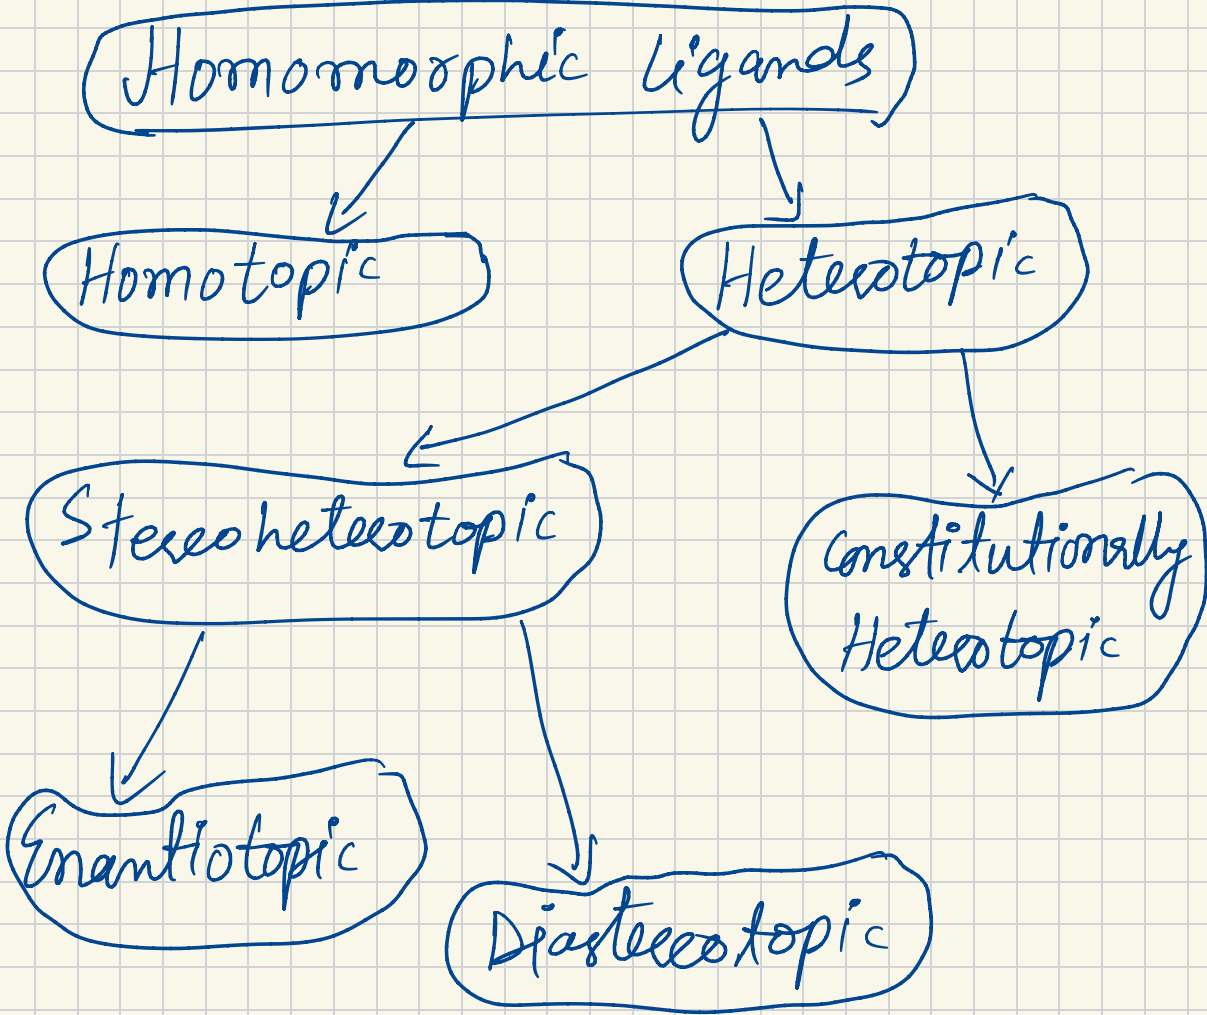 Homomorphic Ligands
Homotopic
Heterotopic
Stereoheterotopic
Constitutionally
Heterotopic
Enantiotopic
Diastereotopic